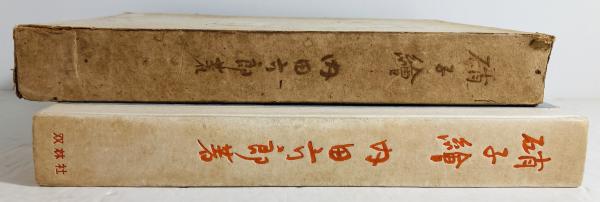 硝子繪 内田六郎著
硝子繪 内田六郎著 双林社